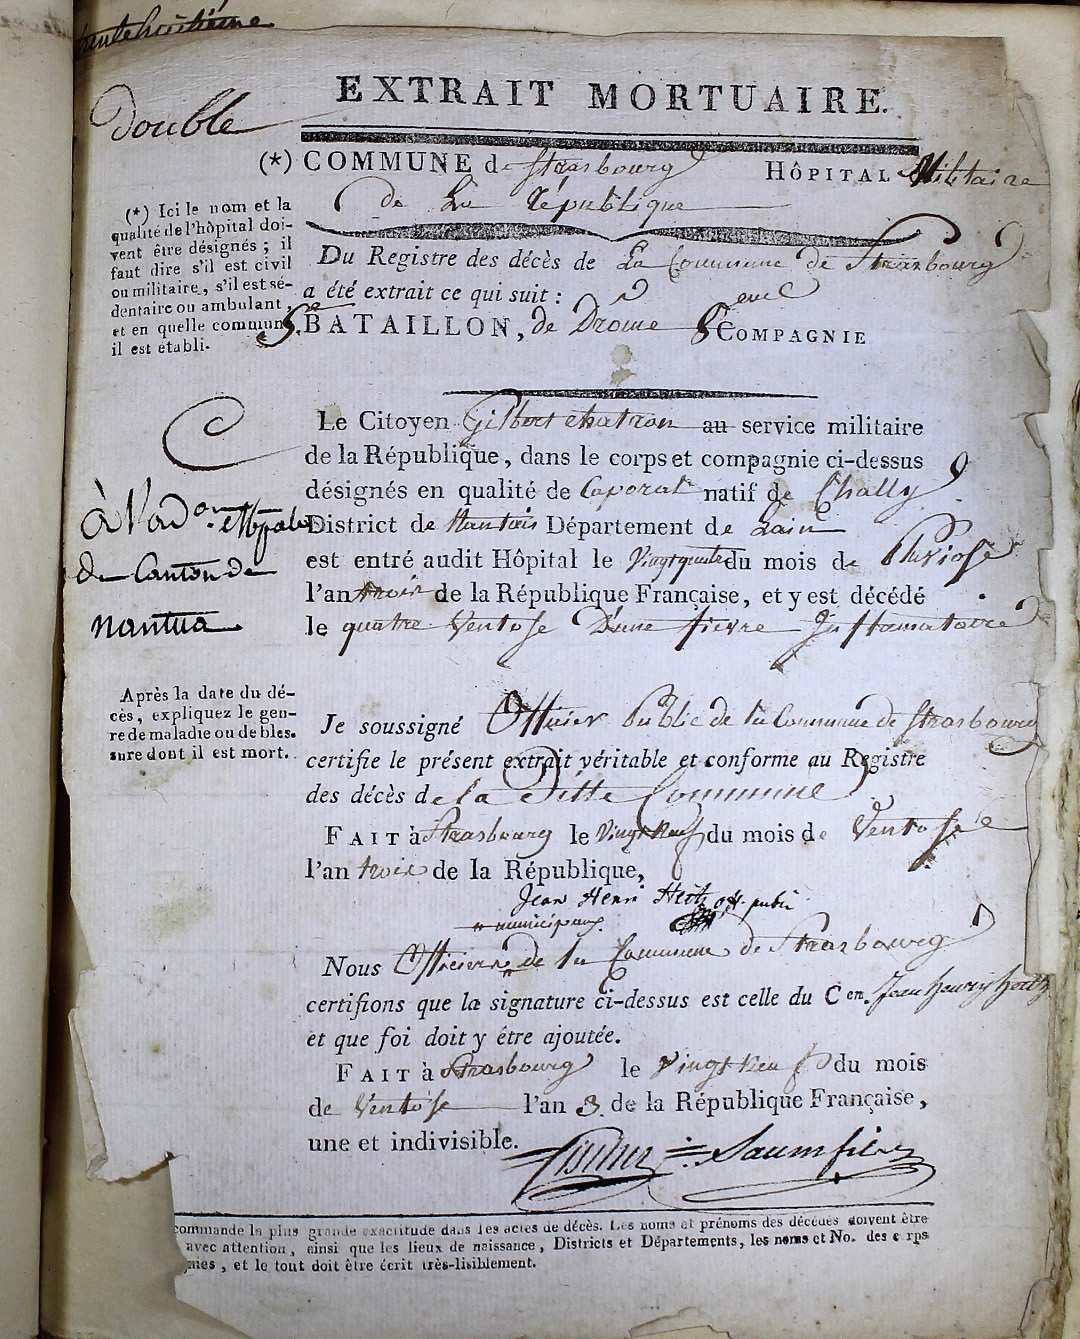 EXTRAIT MORTUAIRE.
double
(*) COMMUNE de Strasbourg HÔPITAL Militaire
de La republique
(*) Ici le nom et la
qualité de l'hôpital doi-
vent être désignés ; il
faut dire s'il est civil
ou militaire, s'il est sé-
dentaire ou ambulant,
et en quelle commune
il est établi.
Du Registre des décès de La Commune de Strasbourg
a été extrait ce qui suit :
5.e BATAILLON, de Drome 8eme COMPAGNIE
Le Citoyen Gilbert chatron au service militaire
de la République, dans le corps et compagnie ci-dessus
désignés en qualité de Caporal natif de Chally
District de Nantais Département de Lain
est entré audit Hôpital le Vingt quatre du mois de Pluviose
l'an trois de la République Française, et y est décédé
le quatre Ventose D'une fievre Inflamatoire
à
de Canton de
nantua
Après la date du dé-
cès, expliquez le gen-
re de maladie ou de bles-
sure dont il est mort.
Je soussigné Officier Public de La Commune de Strasbourg
certifie le présent extrait véritable et conforme au Registre
des décès de la Ditte Commune
FAIT à Strasbourg le Vingt Neuf du mois de Ventose
l'an troix de la République,
Jean Henri Heitz off. public
municipaux
Nous Officiers de la Commune de Strasbourg
certifions que la signature ci-dessus est celle du C en. Jean henry heitz
et que foi doit y être ajoutée.
FAIT à Strasbourg le Vingt Neuf du mois
de Ventose l'an 3 de la République Française,
une et indivisible.
Saum fils
commande la plus grande exactitude dans les actes de décès. Les noms et prénoms des décédés doivent être
avec attention, ainsi que les lieux de naissance, Districts et Départements, les noms et No. des corps
mes, et le tout doit être écrit très-lisiblement.